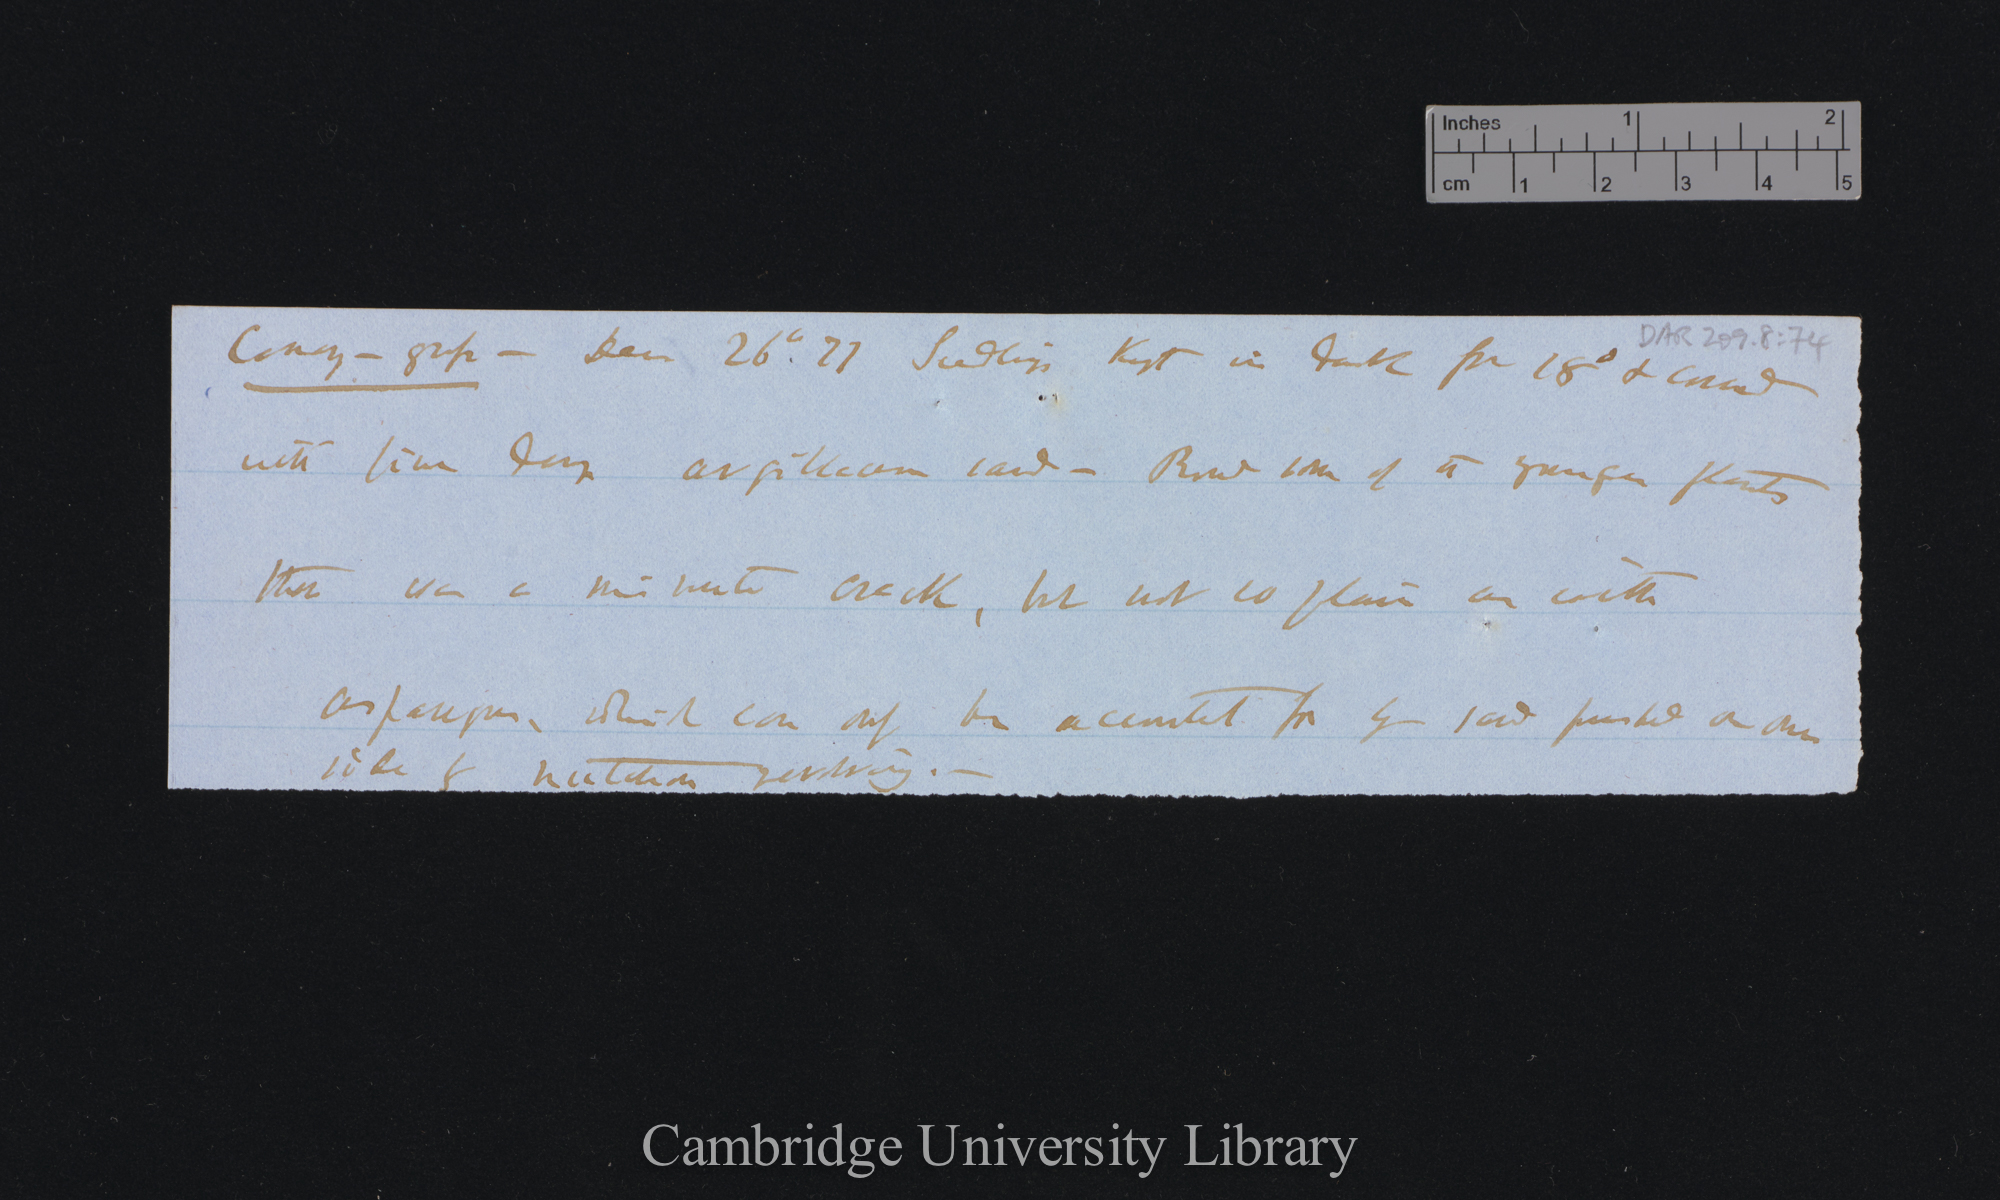 Inches 1 2
cm 1 2 3 4 5
DAR 209.8:74
Canary-grass — Dec 26th. 77 Seedlings kept in dark for 18° & covered
with fine damp argillaceous sand — Round some of the younger plants
there was a minute crack, but not so plain as with
asparagus, which can only be accounted for by sand pushed on one
side by nutation revolving. —
Cambridge University Library